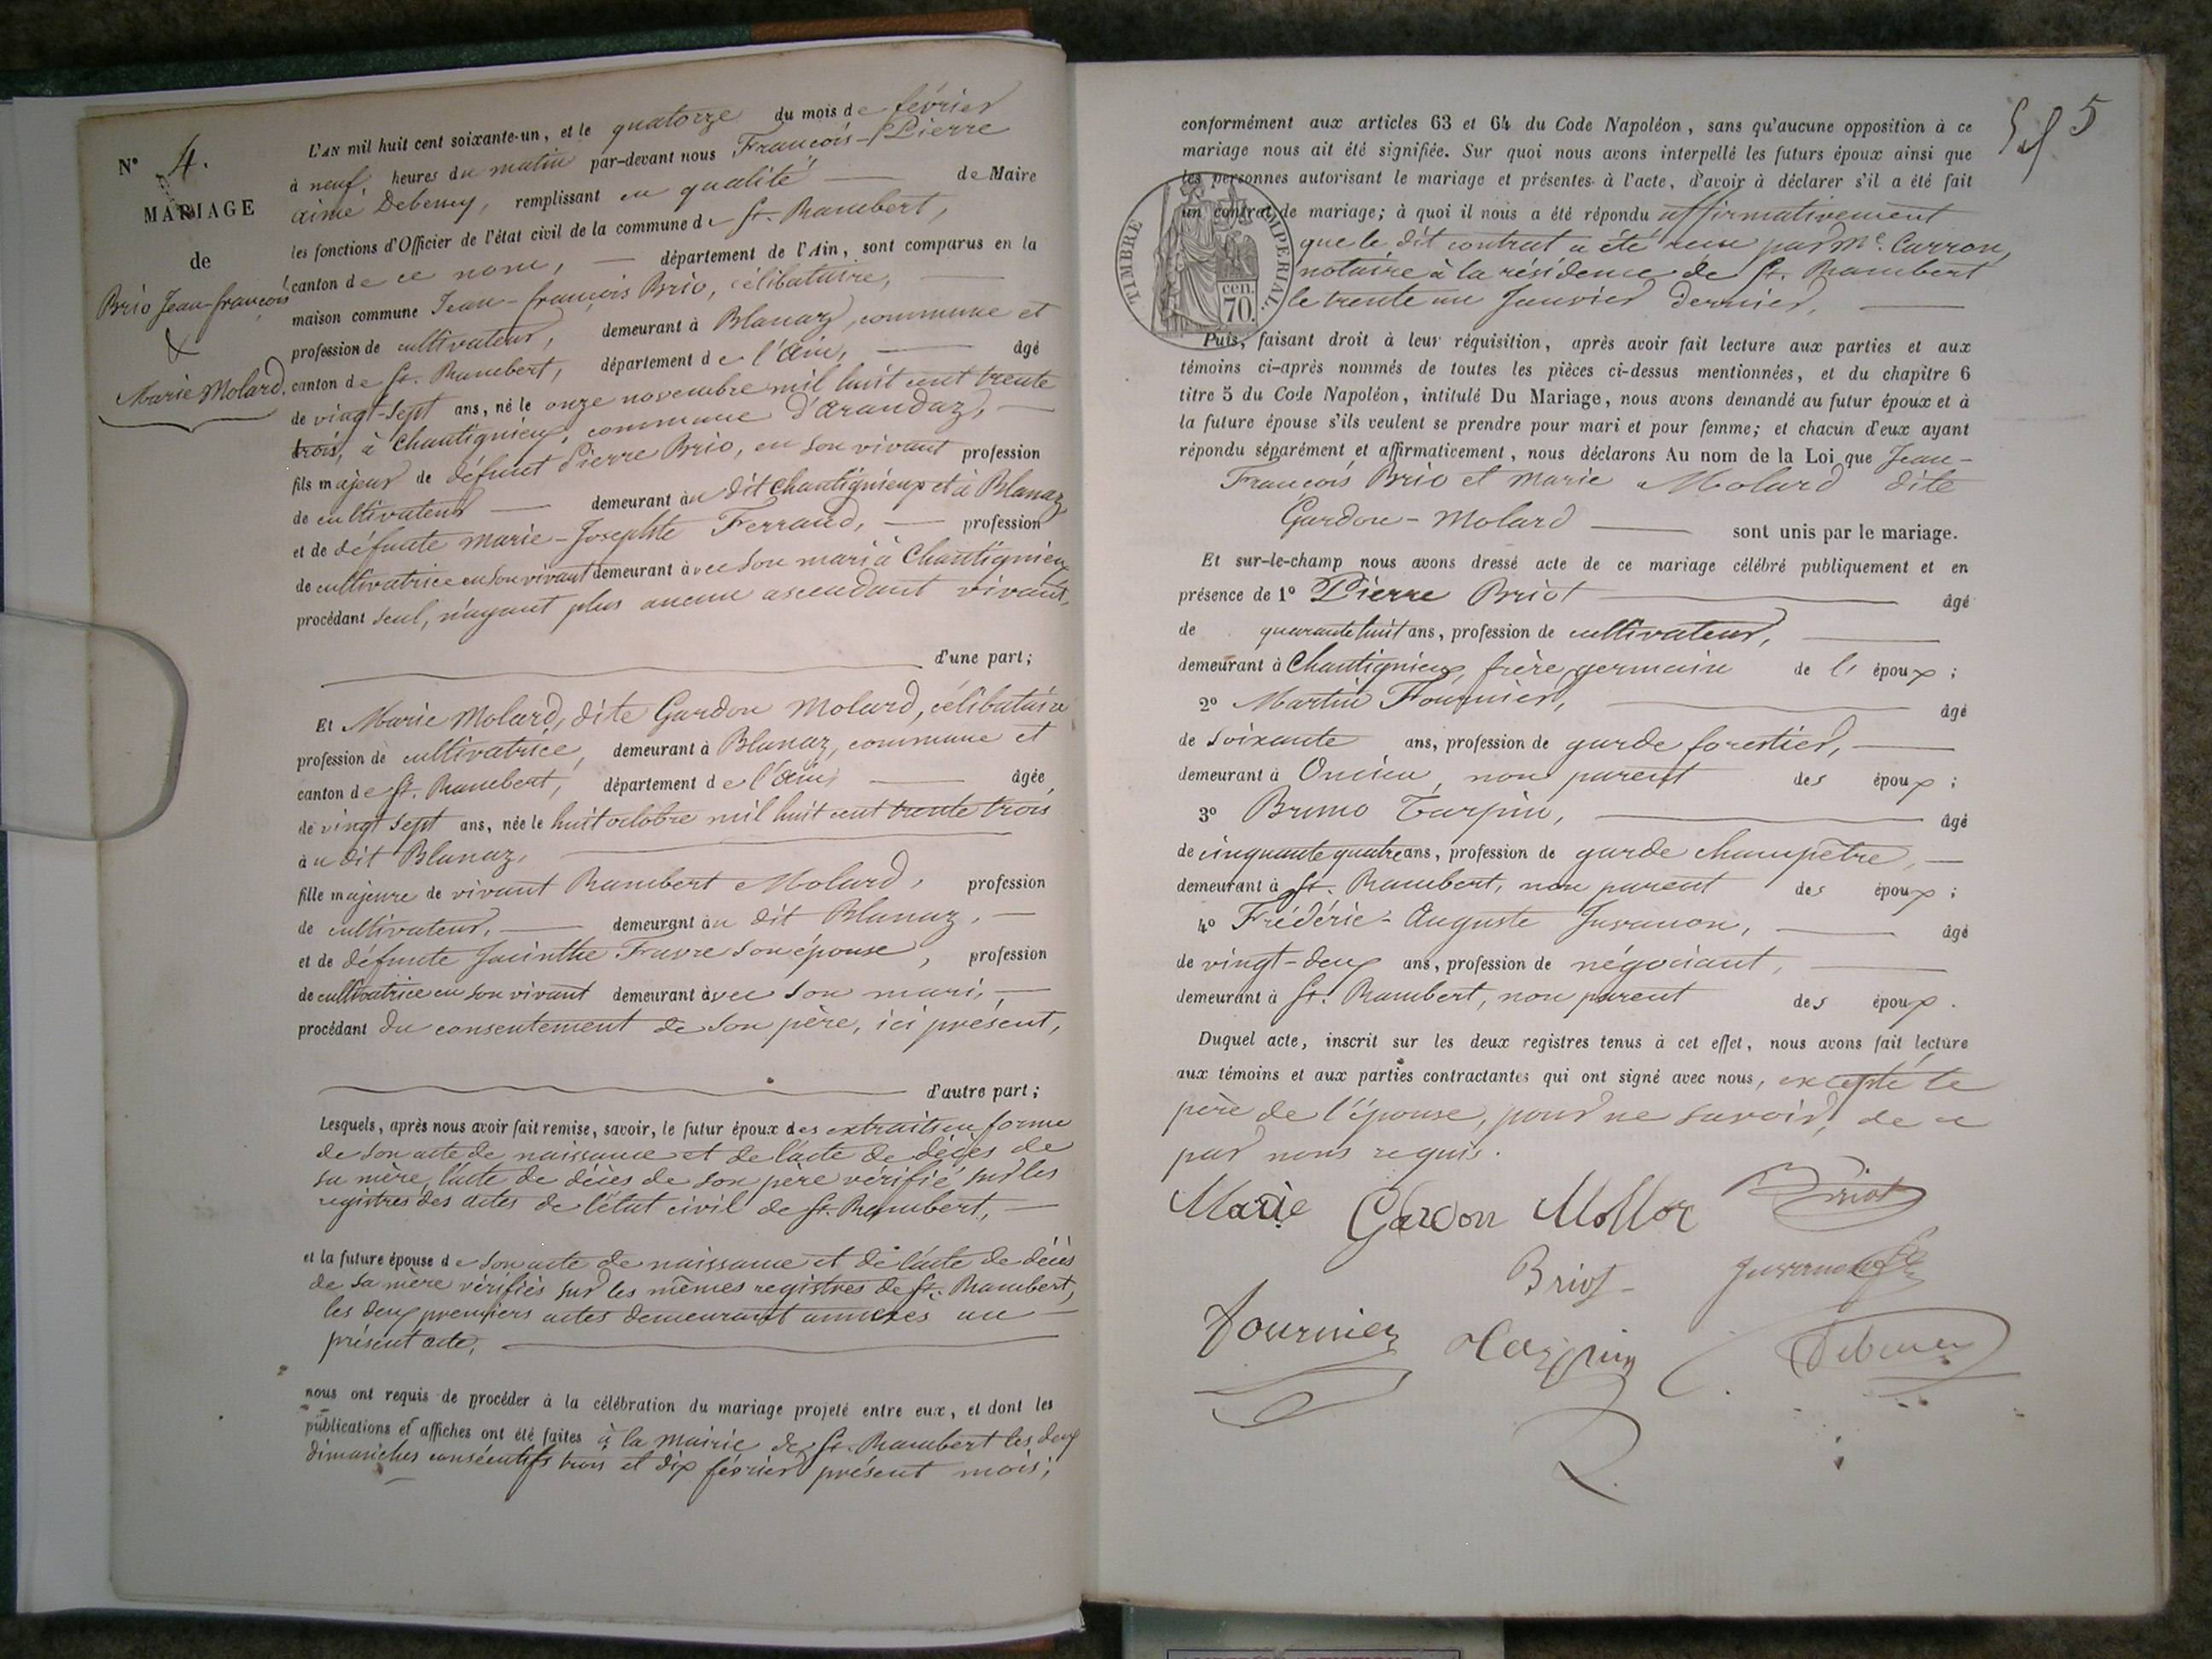 N° 4.
MARIAGE
de
Brio Jean-françois
&
Marie Molard.
L'AN mil huit cent soixante-un, et le quatorze du mois de février
à neuf, heures du matin par-devant nous François-Pierre
aimé Debeney, remplissant en qualité de Maire
les fonctions d'Officier de l'état civil de la commune de St. Rambert,
canton de ce nom, département de l'Ain, sont comparus en la
maison commune Jean-françois Brio, célibataire,
profession de cultivateur, demeurant à Blanaz, commune et
canton de St. Rambert, département de l'Ain, âgé
de vingt-sept ans, né le onze novembre mil huit cent trente
trois, à Chantignieux, commune d'arandaz,
fils majeur de défunt Pierre Brio, en son vivant profession
de cultivateur demeurant au dit Chantignieux et à Blanaz
et de défunte Marie-Josephte Ferrand, profession
de cultivatrice en son vivant demeurant avec son mari à Chantignieux
procédant seul, n'ayant plus aucun ascendant vivant,
d'une part;
Et Marie Molard, dite Gardon Molard, célibataire
profession de cultivatrice, demeurant à Blanaz, commune et
canton de St. Rambert, département de l'Ain, âgée,
de vingt sept ans, née le huit octobre mil huit cent trente trois
au dit Blanaz,
fille majeure de vivant Rambert Molard, profession
de cultivateur, demeurant au dit Blanaz,
et de défunte Jacinthe Favre son épouse, profession
de cultivatrice en son vivant demeurant avec son mari,
procédant du consentement de son père, ici présent,
d'autre part;
Lesquels, après nous avoir fait remise, savoir, le futur époux des extraits en forme
de son acte de naissance et de l'acte de décès de
sa mère, l'acte de décès de son père vérifié sur les
registres des actes de l'état civil de St. Rambert,
et la future épouse de son acte de naissance et de l'acte de décès
de sa mère vérifiés sur les mêmes registres de St. Rambert,
les deux premiers actes demeurant annexés au
présent acte,
nous ont requis de procéder à la célébration du mariage projeté entre eux, et dont les
publications et affiches ont été faites à la mairie de St. Rambert les deux
dimanches consécutifs trois et dix février présent mois;
5
conformément aux articles 63 et 64 du Code Napoléon, sans qu'aucune opposition à ce
mariage nous ait été signifiée. Sur quoi nous avons interpellé les futurs époux ainsi que
les personnes autorisant le mariage et présentes à l'acte, d'avoir à déclarer s'il a été fait
un contrat de mariage; à quoi il nous a été répondu affirmativement
que le dit contrat a été reçu par Me. Carron,
notaire à la résidence de St. Rambert
le trente un Janvier dernier.
TIMBRE IMPERIAL.
70 cen.
Puis, faisant droit à leur réquisition, après avoir fait lecture aux parties et aux
témoins ci-après nommés de toutes les pièces ci-dessus mentionnées, et du chapitre 6
titre 5 du Code Napoléon, intitulé Du Mariage, nous avons demandé au futur époux et à
la future épouse s'ils veulent se prendre pour mari et pour femme; et chacun d'eux ayant
répondu séparément et affirmativement, nous déclarons Au nom de la Loi que Jean-
François Brio et Marie Molard dite
Gardon-Molard sont unis par le mariage.
Et sur-le-champ nous avons dressé acte de ce mariage célébré publiquement et en
présence de 1° Pierre Briot âgé
de quarante huit ans, profession de cultivateur,
demeurant à Chantignieux, frère germain de l' époux;
2° Martin Fournier, âgé
de soixante ans, profession de garde forestier,
demeurant à Oncieu, non parent des époux;
3° Bruno Tarpin, âgé
de cinquante quatre ans, profession de garde champêtre,
demeurant à St. Rambert, non parent des époux;
4° Frédéric-Auguste Juvanon, âgé
de vingt-deux ans, profession de négociant,
demeurant à St. Rambert, non parent des époux.
Duquel acte, inscrit sur les deux registres tenus à cet effet, nous avons fait lecture
aux témoins et aux parties contractantes qui ont signé avec nous, excepté le
père de l'épouse, pour ne savoir, de ce
par nous requis.
Marie Gardon Mollar Briot
Briot Juvanon
fournier Tarpin Debeney